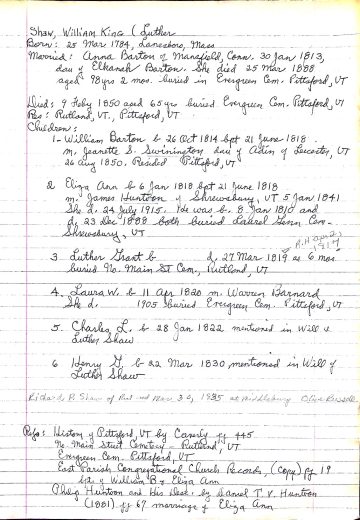 Shaw, William King (Luther
Born: 25 Mar 1784, Lanesboro, Mass
Married: Anna Barton of Mansfield, Conn. 30 Jan 1813,
dau of Elkanah Barton. She died 25 Mar 1888
aged 98yrs 2 mos. buried in Evergreen Cem. Pittsford, VT
Died: 9 Feby 1850 aged 65 yrs buried Evergreen Cem. Pittsford, VT
Res: Rutland, VT., Pittsford, VT
Children:
1- William Barton b 26 Oct 1814 bpt 21 June 1818
m. Jeanette S. Swinington dau of Asa of Leicester, VT
26 Aug 1850. Resided Pittsford, VT
2 Eliza Ann b 6 Jan 1818 bpt 21 June 1818
m. James Huntoon of Shrewsbury, VT 5 Jan 1841
She d. 24 July 1915. He was b. 8 Jan 1810 and
d. 23 Dec 1888 both buried Laurel Glen Cem-
Shrewsbury, VT
3 Luther Grant b d. 27 Mar 1819 ae 6 mos
buried No. Main St Cem, Rutland, VT
4. Laura W. b 11 Apr 1820 m Warren Barnard
She d. 1905 buried Evergreen Cem. Pittsford, VT
5. Charles L. b 28 Jan 1822 mentioned in Will of
Luther Shaw
6 Henry G. b 22 Mar 1830 mentioned in Will of
Luther Shaw
Richard P. Shaw of Rut- md Mar 30, 1835 at Middlebury Olive Russell
Refs: History of Pittsford, VT by Caverly pg 445
No. Main Street Cemetery - Rutland, VT
Evergreen Cem. Pittsford, VT.
East Parish Congregational Church Records, (Copy) pg 19
bpt of William B & Eliza Ann
Philip Huntoon and His Desc. by Daniel T. V. Huntoon
(1881) pg 67 marriage of Eliza Ann